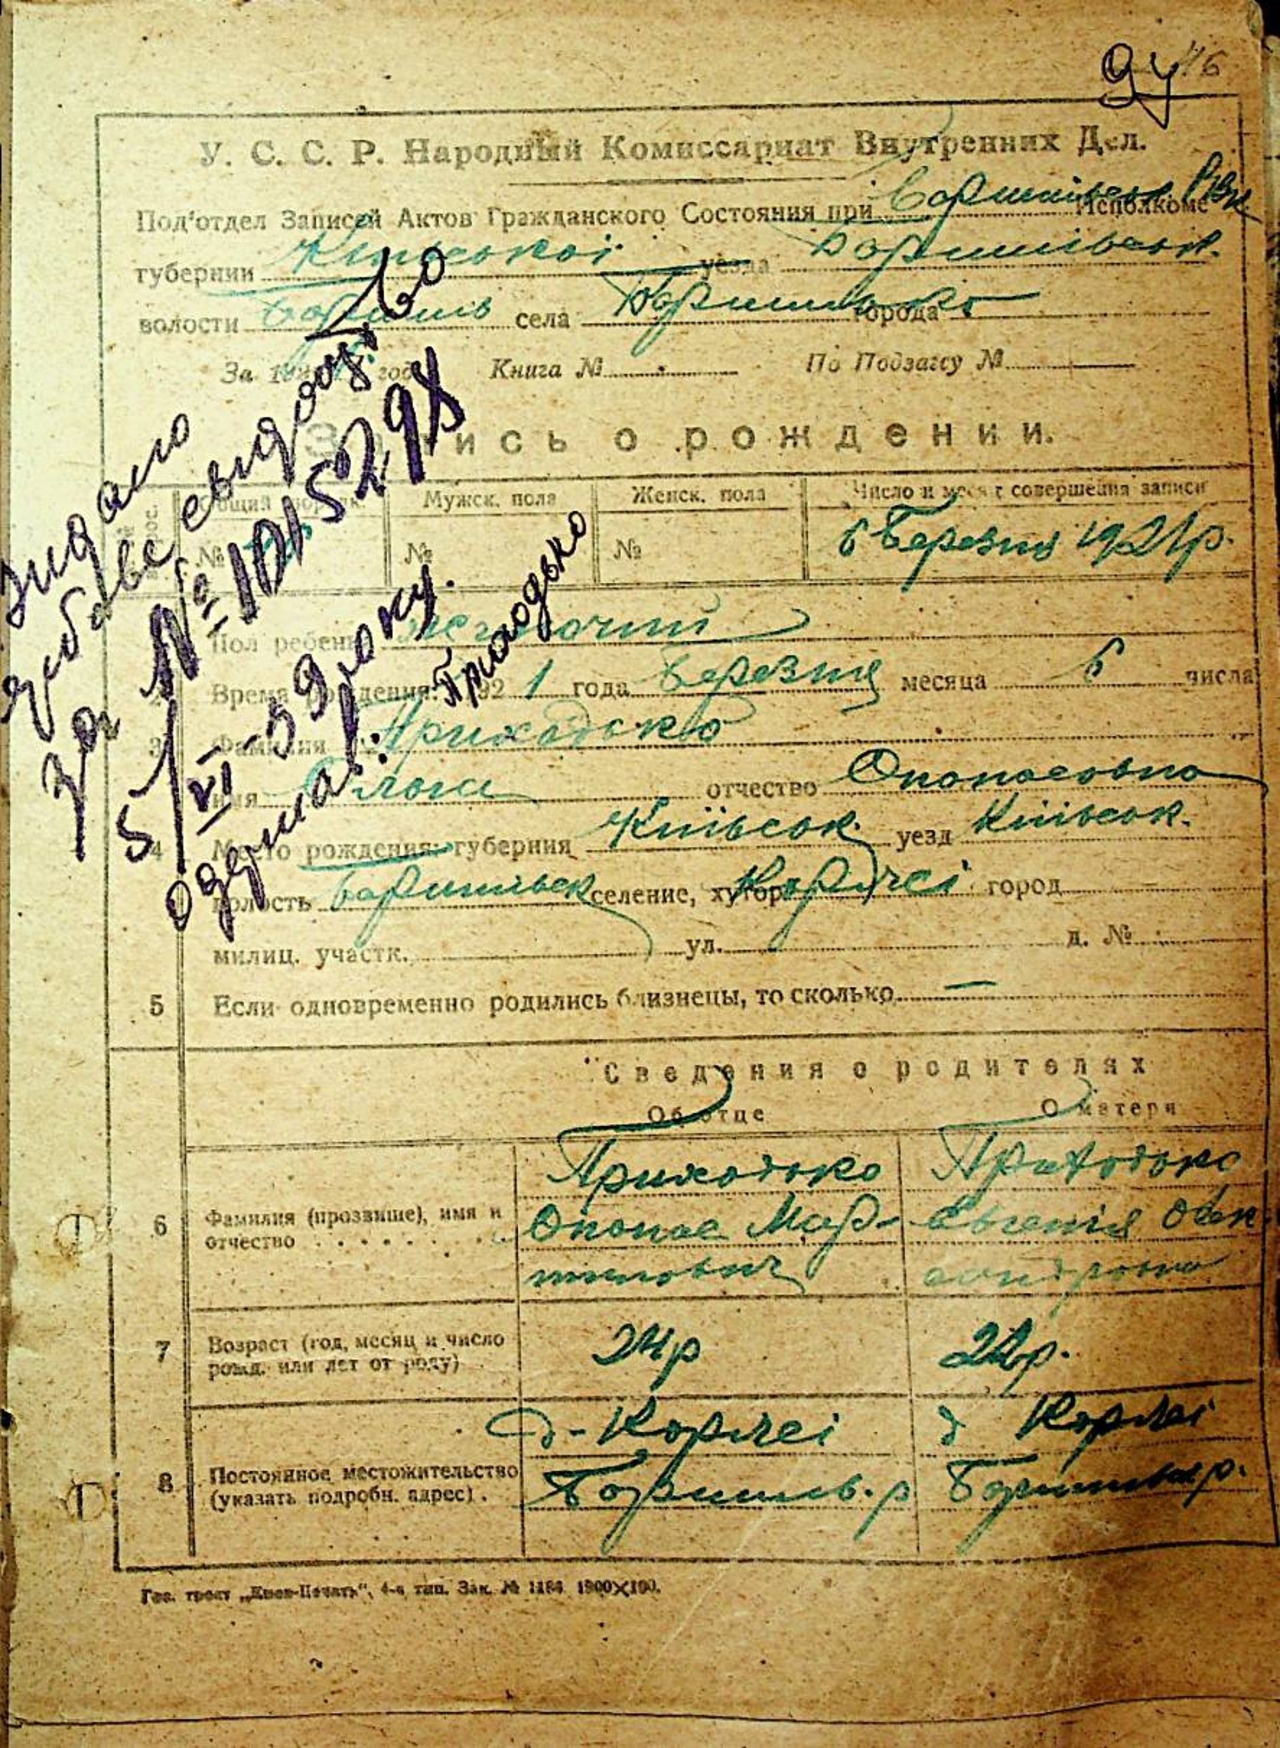 94 46
У. С. С. Р. Народный Комиссариат Внутренних Дел.
Под'отдел Записей Актов Гражданского Состояния при Исполкоме
губернии Київської уезда Бориспільськ.
волости Бориспіль села города
За год Книга № По Подзагсу №
Запись о рождении.
Общий Мужск. пола Женск. пола Число и месяц совершения записи
№ № № 6 Березня 1921р.
Пол ребенка жіночий
Время рождения: 192 1 года Березня месяца 6 числа
3 Фамилия Приходько
имя отчество Опонасовна
4 Место рождения: губерния Київськ. уезд Київськ.
волость Бориспільськ селение, хутор город
милиц. участк. ул. д. №
5 Если одновременно родились близнецы, то сколько —
Сведения о родителях
Об отце О матери
6 Фамилия (прозвище), имя и отчество
Приходько Опонас Мар-
Приходько Євгенія
7 Возраст (год, месяц и число рожд. или лет от роду)
24р 22р.
8 Постоянное местожительство (указать подробн. адрес).
Гос. трест „Киев-Печать", 4-я тип. Зак. № 1184 1900×100.
видано
за № 1015298
5/VI-39 року.
одержав: Приходько